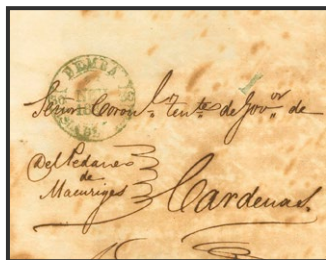 BEMBA
Señor Coronl Tente de Govor de
Del Pedaneo
de
Macuriges
Cardenas.